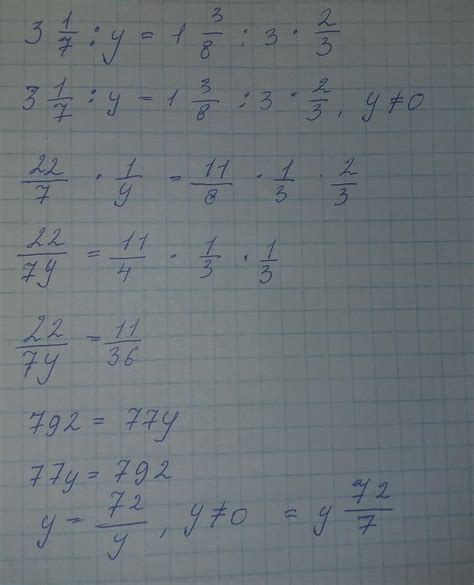 3 1/7 : y = 1 3/8 : 3 · 2/3
3 1/7 : y = 1 3/8 : 3 · 2/3, y ≠ 0
22/7 · 1/y = 11/8 · 1/3 · 2/3
22/7y = 11/4 · 1/3 · 1/3
22/7y = 11/36
792 = 77y
77y = 792
y = 72/y, y ≠ 0 = y 72/7